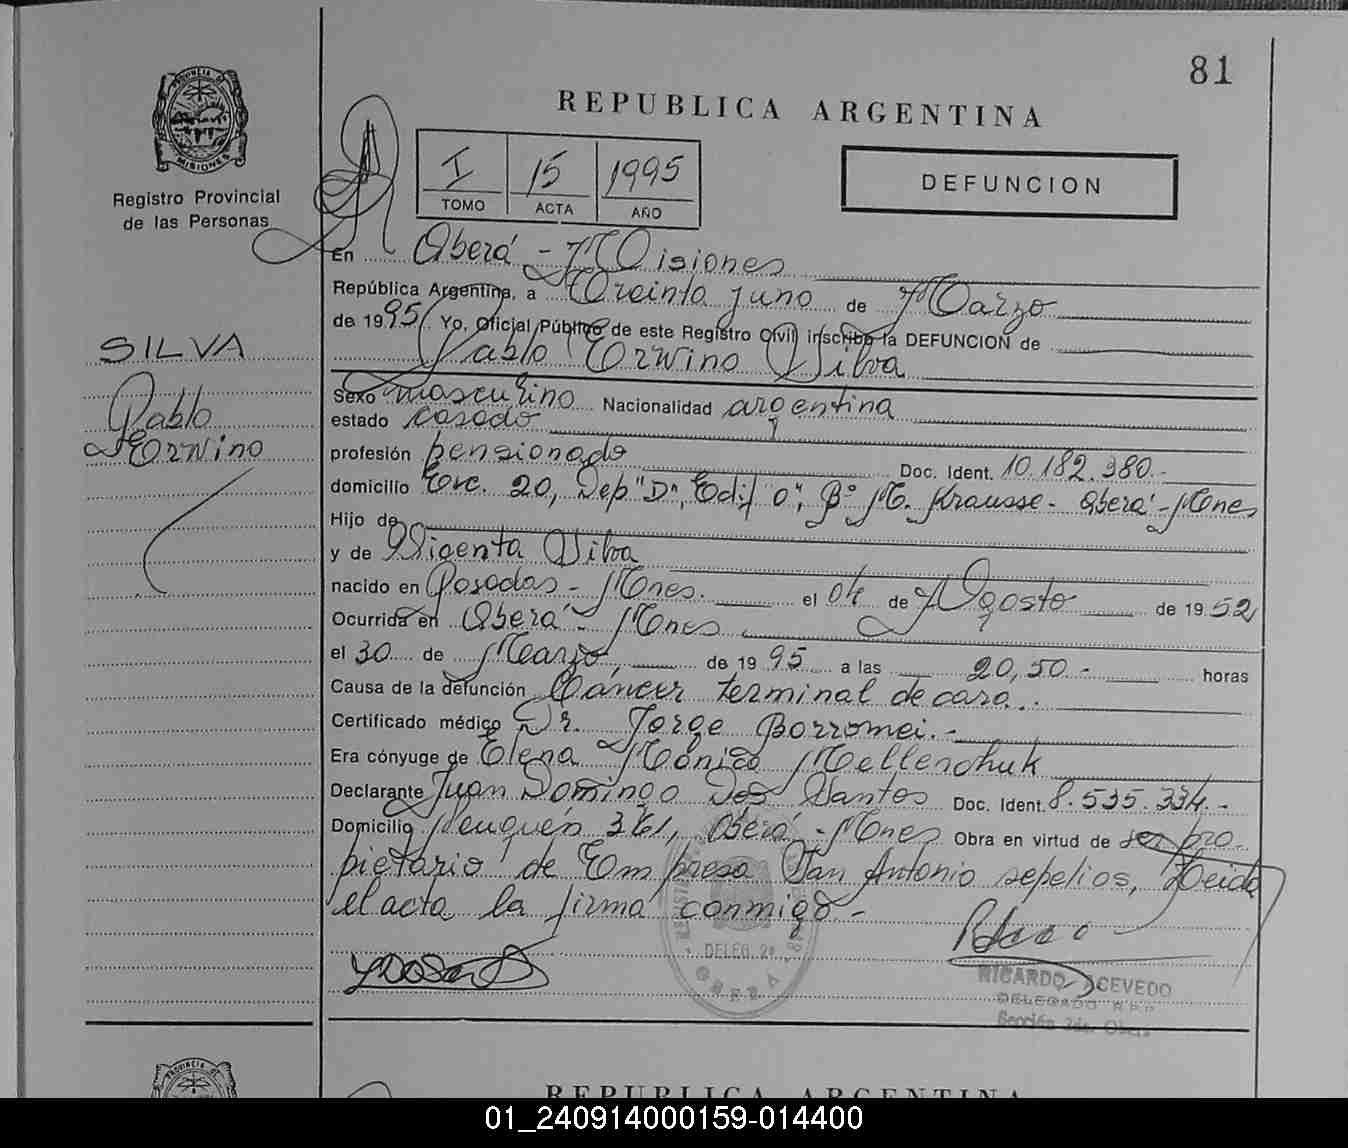 81
REPUBLICA ARGENTINA
PROVINCIA DE
MISIONES
Registro Provincial
de las Personas
I 15 1995
TOMO ACTA AÑO
DEFUNCION
En Oberá - Misiones
República Argentina, a Treinta y uno de Marzo
de 1995 Yo, Oficial Público de este Registro Civil inscribo la DEFUNCION de
Pablo Erwino Silva
SILVA
Pablo
Erwino
Sexo masculino Nacionalidad argentina
estado casado
profesión pensionado Doc. Ident. 10.182.380.-
domicilio Esc. 20, Dep "D", Edif "O", Bº M. Krausse - Oberá - Mnes
Hijo de
y de Vicenta Silva
nacido en Posadas - Mnes. el 04 de Agosto de 1952
Ocurrida en Oberá - Mnes
el 30 de Marzo de 1995 a las 20,50 - horas
Causa de la defunción Cáncer terminal de cara.
Certificado médico Dr. Jorge Borromei.-
Era cónyuge de Elena Mónica Mellenchuk
Declarante Juan Domingo Dos Santos Doc. Ident. 8.535.334.-
Domicilio Neuquén 361, Oberá - Mnes Obra en virtud de ser pro
pietario de Empresa San Antonio sepelios, Leida
el acta la firma conmigo -
DELEG. 2ª
OBERA
RICARDO ACEVEDO
DELEGADO R.P.P.
Sección 2da. Oberá
REPUBLICA ARGENTINA
01_240914000159-014400